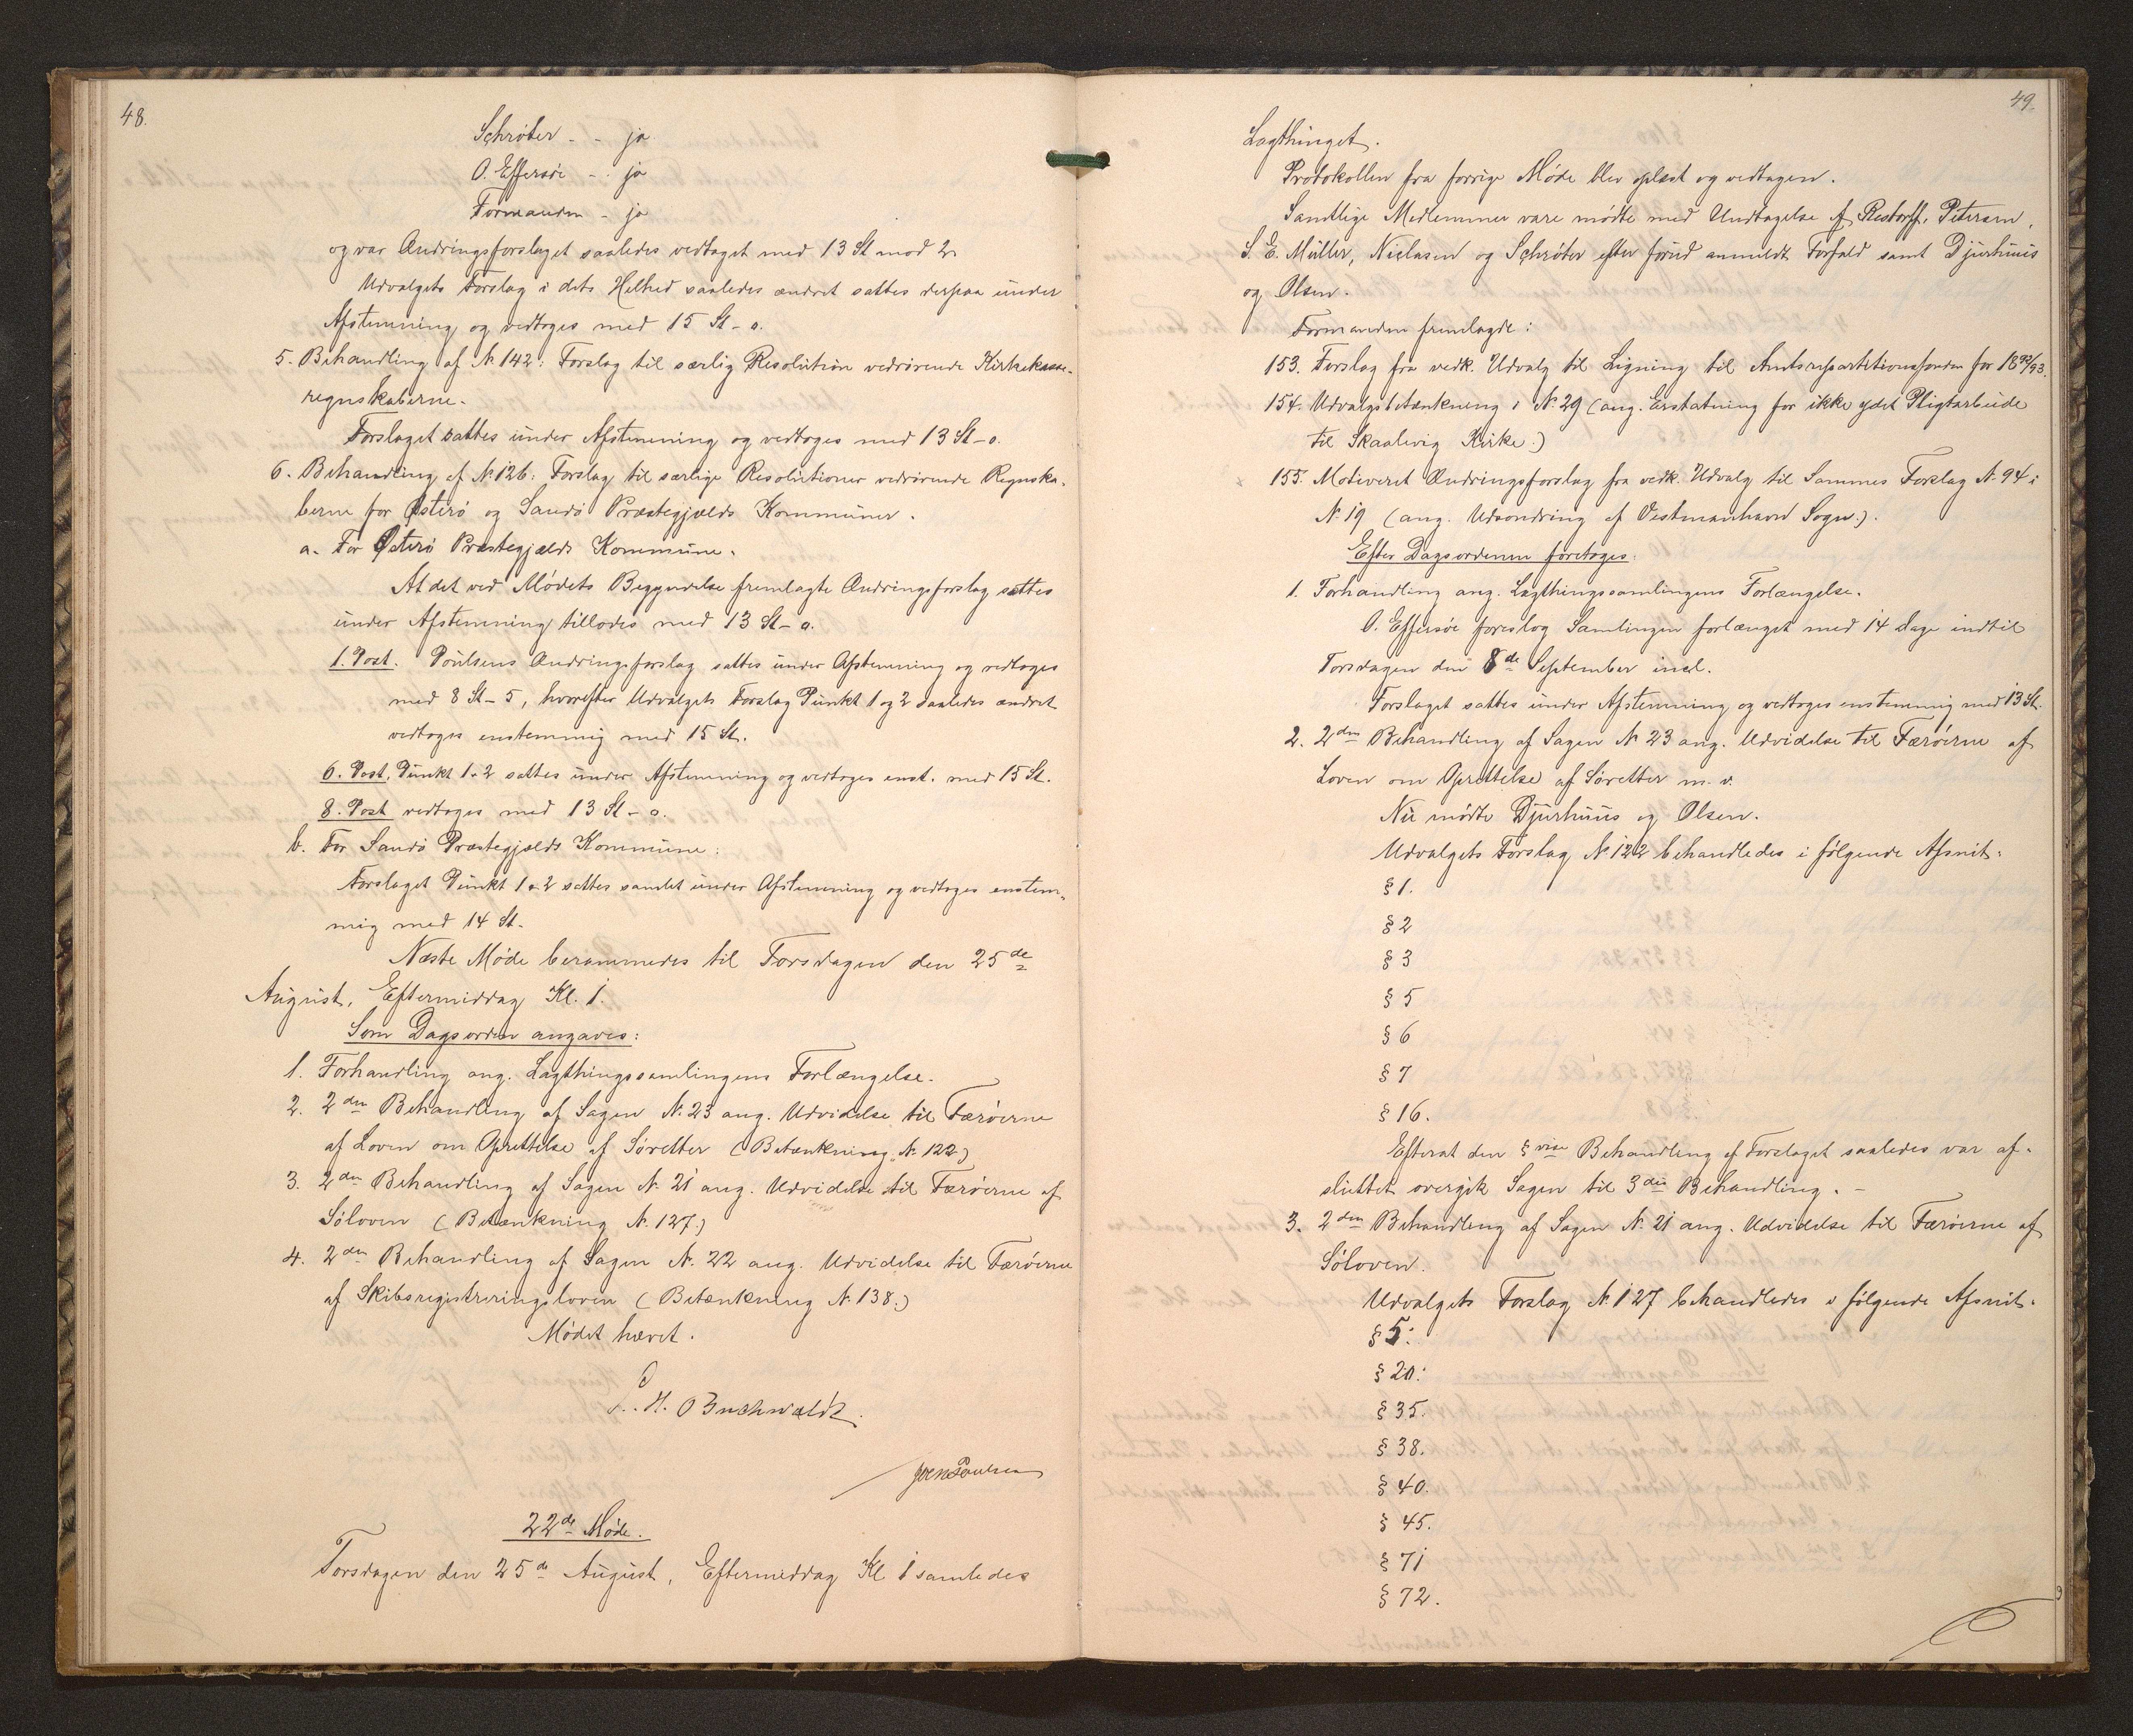 48.
Schrøter - - ja
O. Effersøe - - ja
Formanden - ja
og var Ændringsforslaget saaledes vedtaget med 13 St mod 2
Udvalgets Forslag i dets Helhed saaledes ændret sattes derpaa under
Afstemning og vedtoges med 15 St - 0.
5. Behandling af № 142: Forslag til særlig Resolution vedrørende Kirkekasse-
regnskaberne.
Forslaget sattes under Afstemning og vedtoges med 13 St - 0.
6. Behandling af № 126: Forslag til særlige Resolutioner vedrørende Regnska-
berne for Østerø og Sandø Præstegjælds Kommuner.
a. For Østerø Præstegjælds Kommune.
At det ved Mødets Begyndelse fremlagte Ændringsforslag sattes
under Afstemning tillodes med 13 St - 0.
1. Post. Poulsens Ændringsforslag sattes under Afstemning og vedtoges
med 8 St - 5, hvorefter Udvalgets Forslag Punkt 1 og 2 saaledes ændret
vedtoges enstemmig med 15 St.
6. Post, Punkt 1 & 2 sattes under Afstemning og vedtoges enst. med 15 St.
8. Post vedtoges med 13 St - 0.
b. For Sandø Præstegjælds Kommune:
Forslaget Punkt 1 & 2 sattes samlet under Afstemning og vedtoges enstem-
mig med 14 St.
Næste Møde berammedes til Torsdagen den 25de
August, Eftermiddag Kl. 1.
Som Dagsorden angaves:
1. Forhandling ang. Lagthingssamlingens Forlængelse.
2. 2den Behandling af Sagen № 23 ang. Udvidelse til Færøerne
af Loven om Oprettelse af Søretter (Betænkning № 122)
3. 2den Behandling af Sagen № 21 ang. Udvidelse til Færøerne af
Søloven (Betænkning № 127.)
4. 2den Behandling af Sagen № 22 ang. Udvidelse til Færøerne
af Skibsregistreringsloven (Betænkning № 138.)
Mødet hævet.
L. H. O Buchwaldt.
Joen Poulsen
22de Møde.
Torsdagen den 25de August, Eftermiddag Kl 1 samledes
49.
Lagthinget.
Protokollen fra forrige Møde blev oplæst og vedtagen.
Samtlige Medlemmer vare mødte med Undtagelse af Restorff, Petersen,
S. E. Müller, Nielasen og Schrøter efter forud anmeldt Forfald samt Djurhuus
og Olsen.
Formanden fremlagde:
153. Forslag fra vedk. Udvalg til Ligning til Amtsrepartitionsfonden for 1892/93.
154. Udvalgsbetænkning i № 29 (ang. Erstatning for ikke ydet Pligtarbeide
til Skaalevig Kirke.)
155. Motiveret Ændringsforslag fra vedk. Udvalg til Sammes Forslag № 94 i
№ 19 (ang. Udsondring af Vestmanhavn Sogn.).
Efter Dagsordenen foretoges:
1. Forhandling ang. Lagthingssamlingens Forlængelse.
O. Effersøe foreslog Samlingen forlænget med 14 dage indtil
Torsdagen den 8de September incl.
Forslaget sattes under Afstemning og vedtoges enstemmig med 13 St.
2. 2den Behandling af Sagen № 23 ang. Udvidelse til Færøerne af
Loven om Oprettelse af Søretter m. v.
Nu mødte Djurhuus og Olsen.
Udvalgets Forslag № 122 behandledes i følgende Afsnit:
§ 1.
§ 2
§ 3
§ 5
§ 6
§ 7
§ 16.
Efterat den § vise Behandling af Forslaget saaledes var af-
sluttet overgik Sagen til 3die Behandling. -
3. 2den Behandling af Sagen № 21 ang. Udvidelse til Færøerne af
Søloven.
Udvalgets Forslag № 127 behandledes i følgende Afsnit:
§ 5:
§ 20:
§ 35.
§ 38.
§ 40.
§ 45.
§ 71
§ 72.